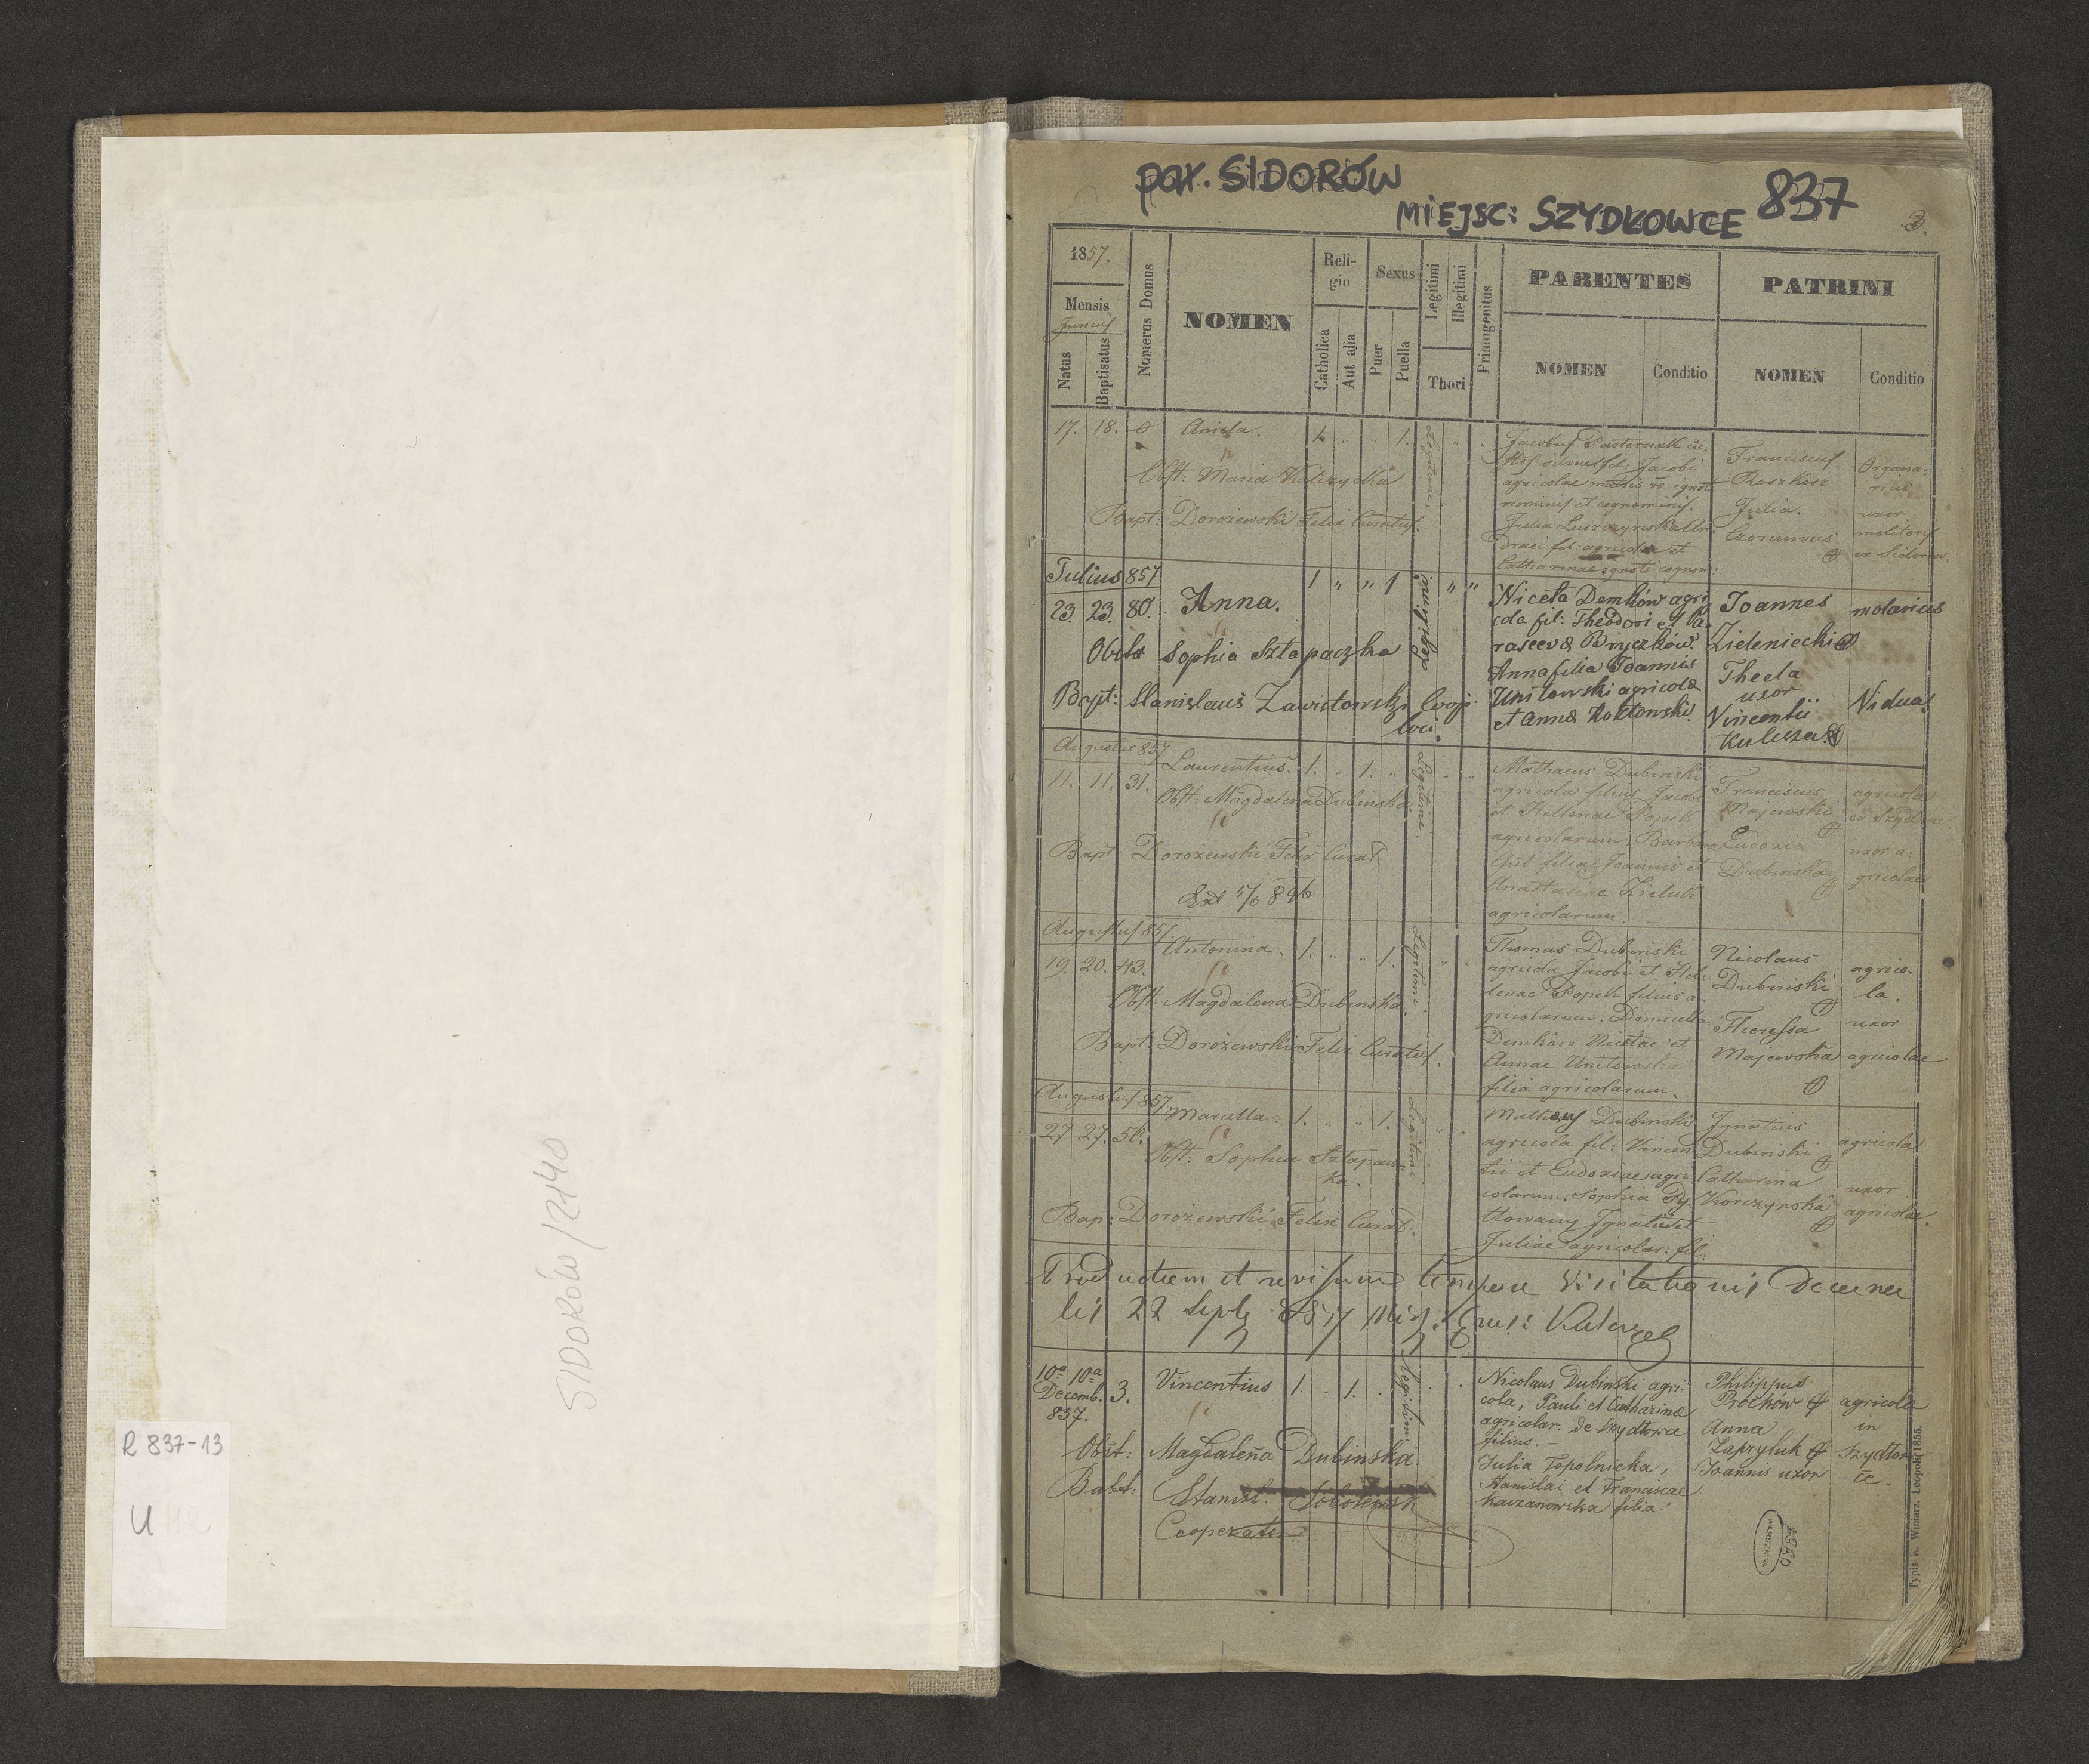 SIDORÓW/2140
R 837-13
U
par. SIDORÓW
MIEJSC: SZYDŁOWCE
837
3.
1857.
Mensis
Junius
Natus
Baptisatus
Numerus Domus
NOMEN
Religio
Catholica
Aut alia
Sexus
Puer
Puella
Legitimi
Illegitimi
Thori
Primogenitus
PARENTES
NOMEN
Conditio
PATRINI
NOMEN
Conditio
17. 18. Aniela. 1. " " 1. Legitimi " "
Obst: Maria Kulczycka
Bapt: Dorożewski Felix Curatus.
Jacobus Pasternak cu-
stos silvae fil: Jacobi
agricolae matris ignot
nominis et cognominis.
Julia Luszczynska An-
dreae fil: agricolae et
Catharinae ignoti cognom:
Franciscus
Roszkosz
Julia
Organa-
rius
uxor
molitoris
ex Sidorow
Julius 857
23. 23. 80. Anna. 1 " " 1 Legitimi " "
Obstx Sophia Sztapaczka
Bapt: Stanislaus Zawistowski Coop:
loci.
Niceta Demków agri
cola fil: Theodori et Pa-
rascevæ Bryczków.
Anna filia Joannis
Unitowski agricolæ
et Annæ
Joannes
Zieleniecki
Thecla
uxor
Vincentii
Kulczat
molarius
Vidua
Augustus 857
11. 11. 31. Laurentius. 1. " 1. " Legitimi. " "
Obst: Magdalena Dubinska
Bapt: Dorożewski Felix Curat.
Ext 5/6 896
Mathaeus Dubinski
agricola filius Jacobi
et Hellenae Popek
agricolarum. Barbara
filia Joannis et
Anastasiae
agricolarum.
Franciscus
Majewski
Eudoxia
Dubinska
agricola
ex Szydłowce
uxor a-
gricolae
Augustus 857.
19. 20. 43. Antonina. 1. " " 1. Legitimi. " "
Obst: Magdalena Dubinska.
Bapt: Dorożewski Felix Curatus.
Thomas Dubinski
agricola Jacobi et Hel-
lenae Popek filius a-
gricolarum. Domicella
Demków Nicetae et
Annae Unitowska
filia agricolarum.
Nicolaus
Dubinski
Theressa
Majewska
agrico-
la.
uxor
agricolae
Augustus 857
27 27. 50. Marcella. 1. " " 1. Legitimi " "
Obst: Sophia Sztapacz-
ka.
Bap: Dorożewski Felix Curat:
Mathaus Dubinski
agricola fil: Vincen
tii et Eudoxiae agri-
colarum. Sophia Py-
Ignatii et
Juliae agricolar: fil:
Ignatius
Dubinski
Catharina
Korczynska
agricola
uxor
agricolae.
Productum et revisum tempore Visitationis Decana
lis 22 Septb 857
10a 10a
Decemb. 3. Vincentius 1. . 1. . Legitimi. .
857.
Obst: Magdalena Dubinska.
Bapt: Stanisl. Sobolewski
Cooperator
Nicolaus Dubinski agri-
cola, Pauli et Catharinæ
agricolar. de Szydłowce
filius. —
Julia Topolnicka,
Stanislai et Franciscae
Kaczanowska filia.
Philippus
Prociów
Anna
Zapryluk
Joannis uxor
agricolæ
in
Szydłow-
ce.
Typis n. Winiarz. Leopoli 1855.
AGAD
WARSZAWA